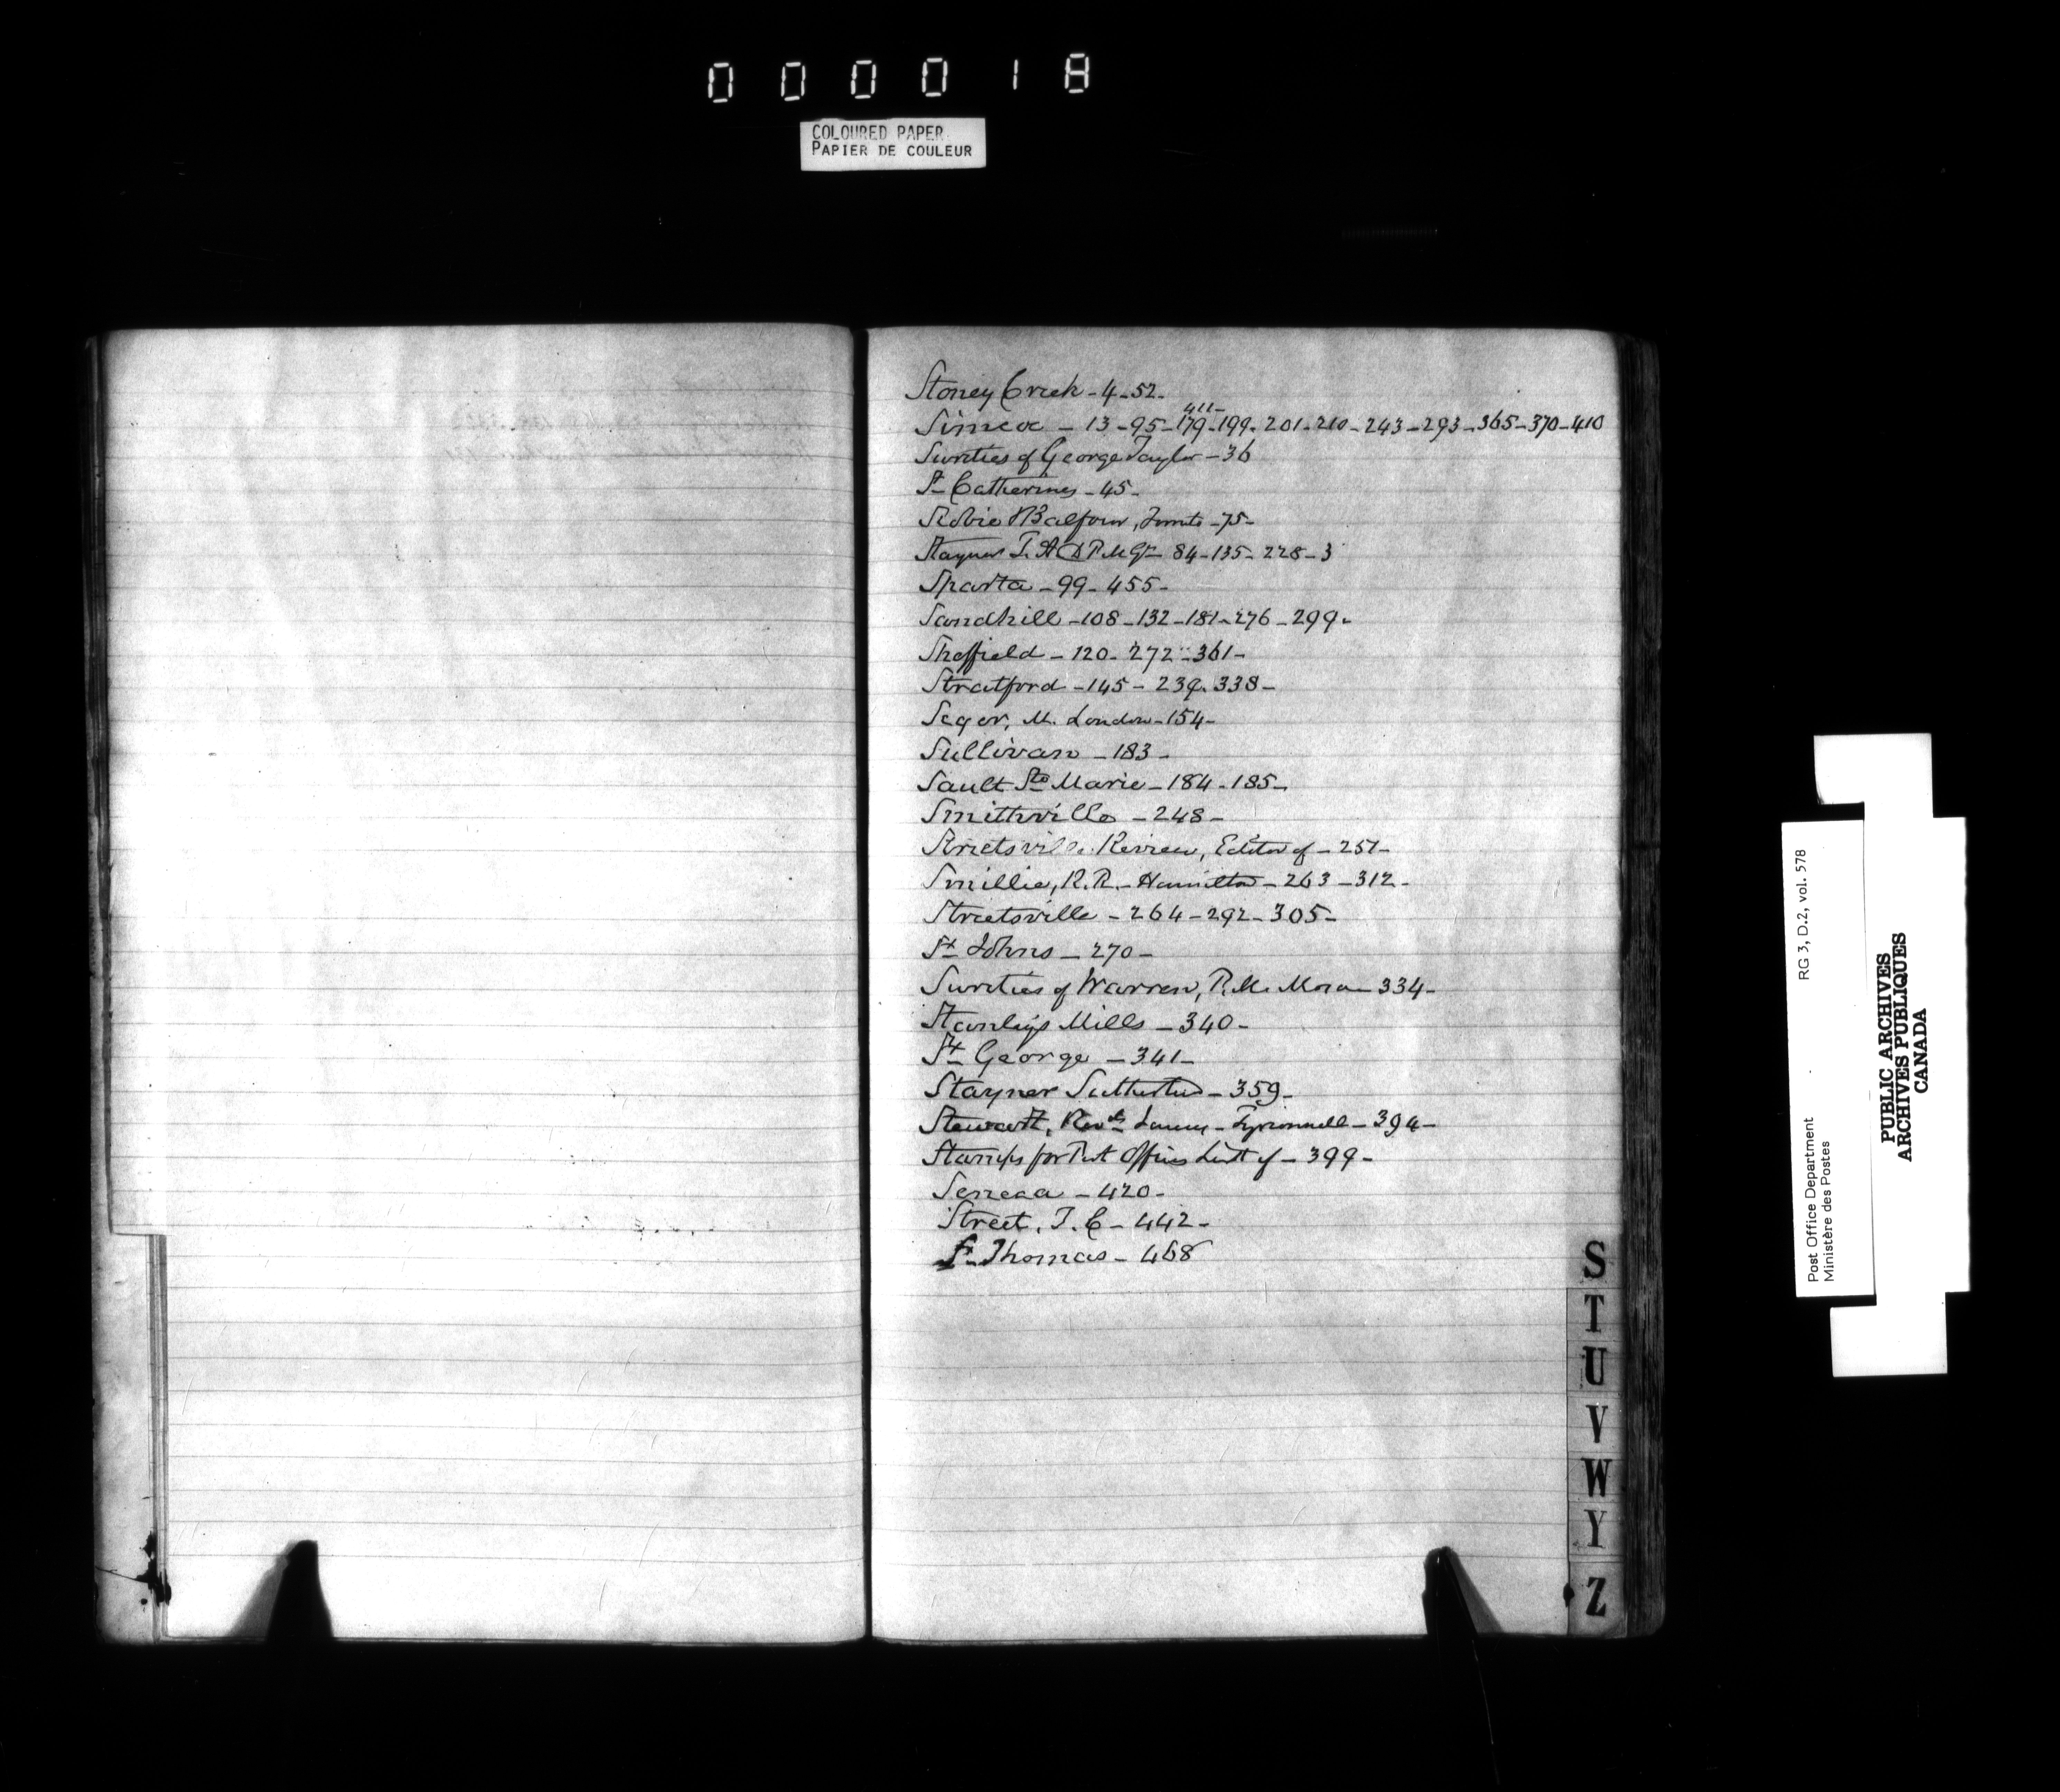 000018
COLOURED PAPER
PAPIER DE COULEUR
Stoney Creek - 4 - 52 -
411 -
Simcoe - 13 - 95 - 179 - 199 - 201 - 210 - 243 - 293 - 365 - 370 - 410
Sureties of George Taylor - 36
St Catherines - 45 -
Balfour, Toronto - 75 -
Stayner T. A D P. M Gl - 84 - 135 - 228 - 3
Sparta - 99 - 455 -
Sandhill - 108 - 132 - 181 - 276 - 299 -
Sheffield - 120 - 272 - 361 -
Stratford - 145 - 239 - 338 -
Seger, M. London - 154 -
Sullivan - 183 -
Sault Ste Marie - 184 - 185 -
Smithville - 248 -
Streetsville Review, Editor of - 257 -
Smillie, R. R. - Hamilton - 263 - 312 -
Streetsville - 264 - 292 - 305 -
St Johns - 270 -
Sureties of Warren, P. M. Mora - 334 -
Stanleys Mills - 340 -
St George - 341 -
Stayner Sutherland - 359 -
Stewart, Revd - Tyrconnell - 394 -
Stamps for Post Offices List of - 399 -
Seneca - 420 -
Street, T. C - 442 -
St Thomas - 468
S
T
U
V
W
Y
Z
RG 3, D.2, vol. 578
Post Office Department
Ministère des Postes
PUBLIC ARCHIVES
ARCHIVES PUBLIQUES
CANADA